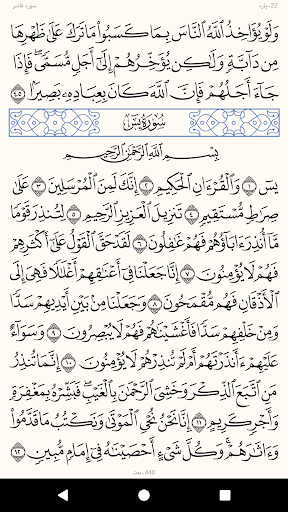 22-پاره سورة فاطر
وَلَوْ يُؤَاخِذُ ٱللَّهُ ٱلنَّاسَ بِمَا كَسَبُوا۟ مَا تَرَكَ عَلَىٰ ظَهْرِهَا
مِن دَآبَّةٍ وَلَٰكِن يُؤَخِّرُهُمْ إِلَىٰٓ أَجَلٍ مُّسَمًّى ۖ فَإِذَا
جَآءَ أَجَلُهُمْ فَإِنَّ ٱللَّهَ كَانَ بِعِبَادِهِۦ بَصِيرًۢا ٤٥
سُورَةُ يسٓ
بِسْمِ ٱللَّهِ ٱلرَّحْمَٰنِ ٱلرَّحِيمِ
يسٓ ١ وَٱلْقُرْءَانِ ٱلْحَكِيمِ ٢ إِنَّكَ لَمِنَ ٱلْمُرْسَلِينَ ٣ عَلَىٰ
صِرَٰطٍ مُّسْتَقِيمٍ ٤ تَنزِيلَ ٱلْعَزِيزِ ٱلرَّحِيمِ ٥ لِتُنذِرَ قَوْمًا
مَّآ أُنذِرَ ءَابَآؤُهُمْ فَهُمْ غَٰفِلُونَ ٦ لَقَدْ حَقَّ ٱلْقَوْلُ عَلَىٰٓ أَكْثَرِهِمْ
فَهُمْ لَا يُؤْمِنُونَ ٧ إِنَّا جَعَلْنَا فِىٓ أَعْنَٰقِهِمْ أَغْلَٰلًا فَهِىَ إِلَى
ٱلْأَذْقَانِ فَهُم مُّقْمَحُونَ ٨ وَجَعَلْنَا مِنۢ بَيْنِ أَيْدِيهِمْ سَدًّا
وَمِنْ خَلْفِهِمْ سَدًّا فَأَغْشَيْنَٰهُمْ فَهُمْ لَا يُبْصِرُونَ ٩ وَسَوَآءٌ
عَلَيْهِمْ ءَأَنذَرْتَهُمْ أَمْ لَمْ تُنذِرْهُمْ لَا يُؤْمِنُونَ ١٠ إِنَّمَا تُنذِرُ
مَنِ ٱتَّبَعَ ٱلذِّكْرَ وَخَشِىَ ٱلرَّحْمَٰنَ بِٱلْغَيْبِ ۖ فَبَشِّرْهُ بِمَغْفِرَةٍ
وَأَجْرٍ كَرِيمٍ ١١ إِنَّا نَحْنُ نُحْىِ ٱلْمَوْتَىٰ وَنَكْتُبُ مَا قَدَّمُوا۟
وَءَاثَٰرَهُمْ ۚ وَكُلَّ شَىْءٍ أَحْصَيْنَٰهُ فِىٓ إِمَامٍ مُّبِينٍ ١٢
440